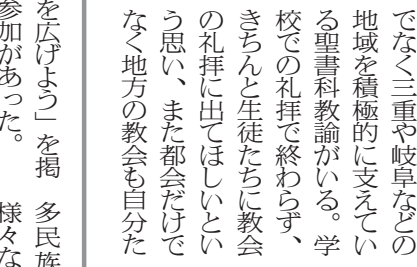 でなく三重や岐阜などの
地域を積極的に支えてい
る聖書科教諭がいる。学
校での礼拝で終わらず、
きちんと生徒たちに教会
の礼拝に出てほしいとい
う思い、また都会だけで
なく地方の教会も自分た
多民族
様々な
を広げよう」を掲
参加があった。